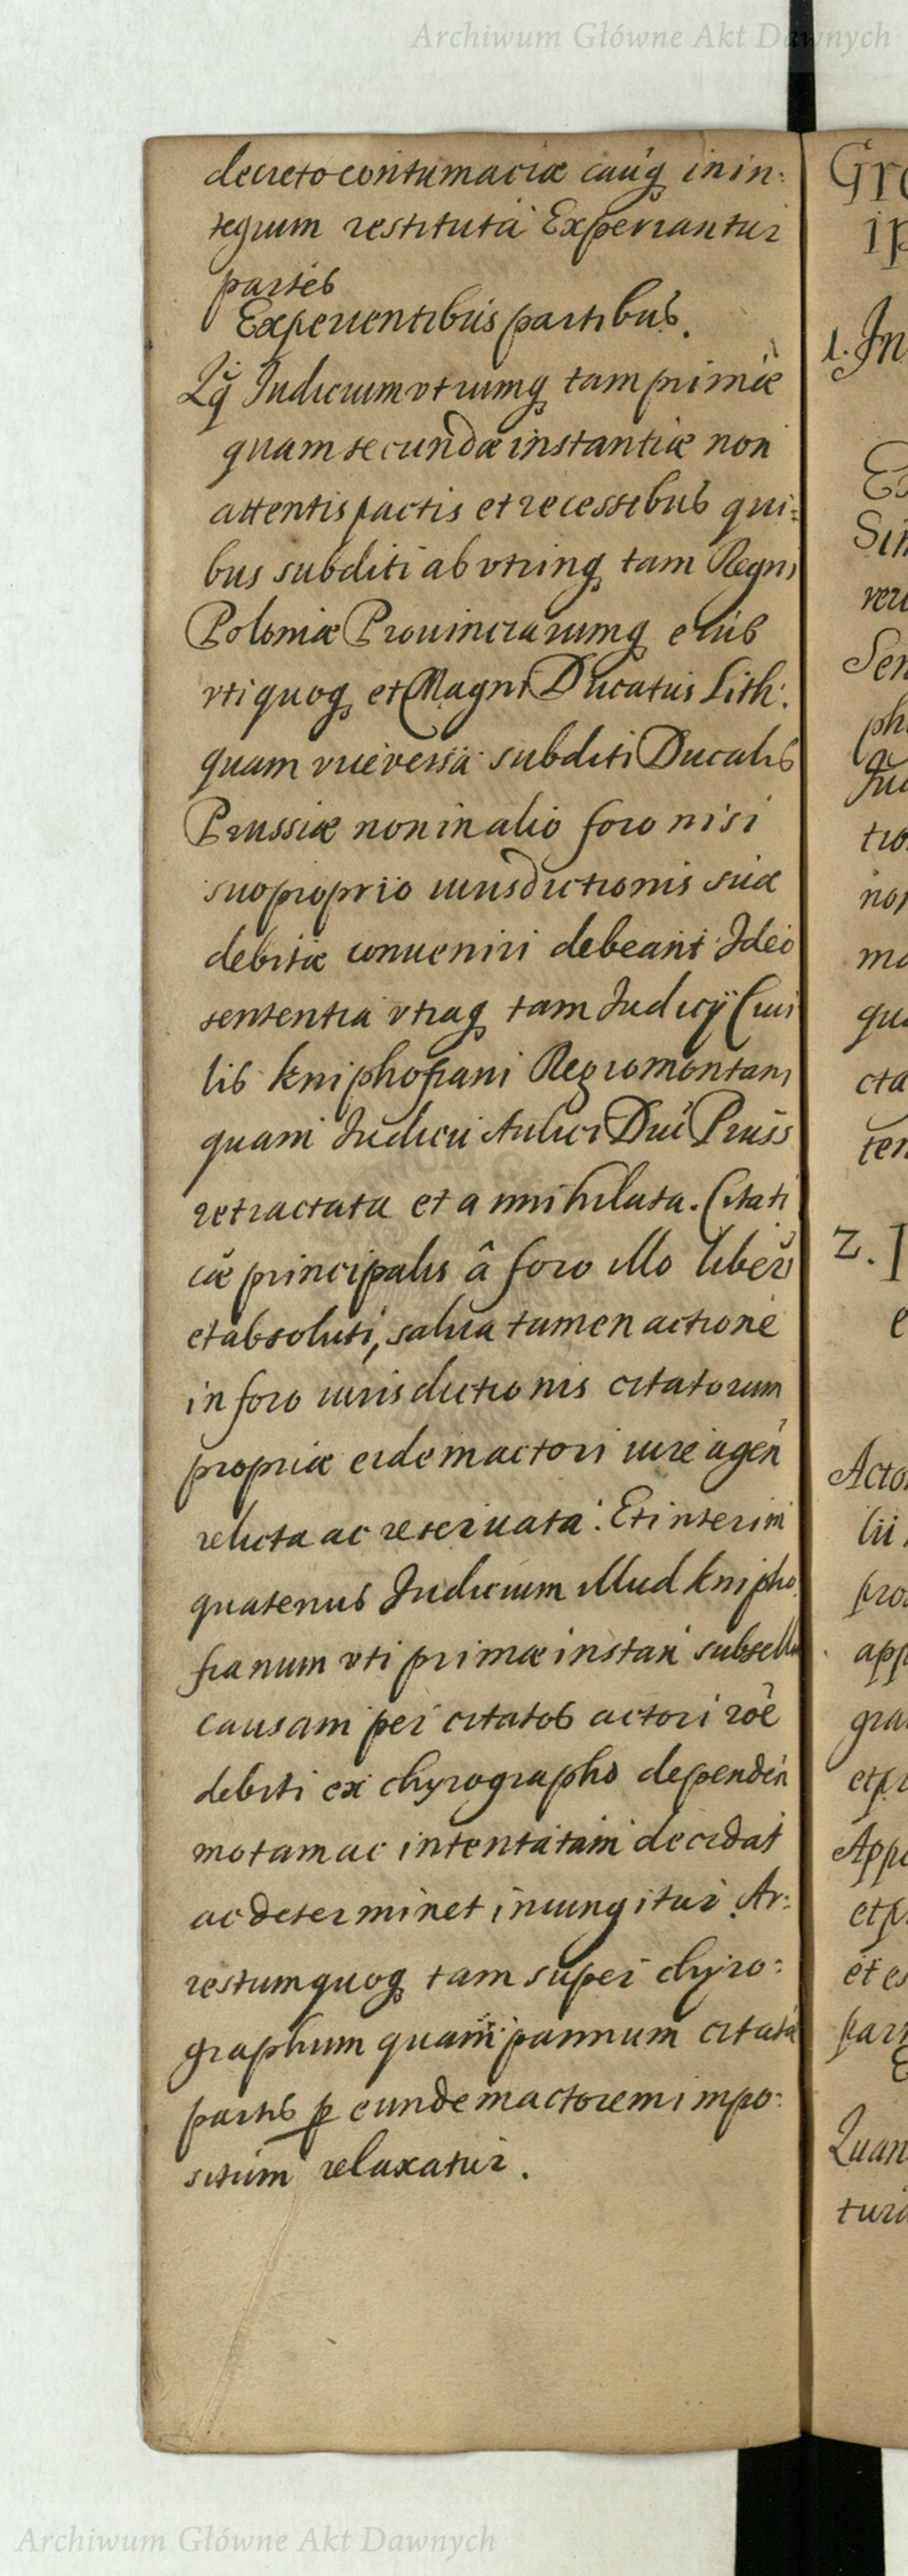 Archiwum Główne Akt Dawnych
decreto contumaciæ cauq̃ in in:
tegrum restituta Experiantur
partes
Experientibus partibus.
Qq̃ Iudicium vtrumq̨ tam primæ
quam secundæ instantiæ non
attentis pactis et recessibus qui:
bus subditi ab vtrinq̨ tam Regni
Poloniæ Prouinciarumq̨ eius
vti quoq̨ et Magni Ducatus Lith:
quam viceversa subditi Ducalis
Prussiæ non in alio foro nisi
suo proprio iurisdictionis suæ
debitæ conueniri debeant Ideo
sententia vtraq̨ tam Iudicÿ Ciui
lis kniphofiani Regiomontani
quam Iudicii Aulici Duc̃ Pruss
retractata et annihilata. Citati
cæ principalis â foro illo liberi
et absoluti, salua tamen actione
in foro iurisdictionis citatorum
propriæ eidem actori iure agen
relicta ac reseruata. Et interim
quatenus Iudicium illud knipho
fianum vti primæ instan subsellii
causam per citatos actori rõe
debiti ex chyrographo dependen
motam ac intentatam decidat
ac determinet iniungitur. Ar:
restum quoq̨ tam super chyro:
graphum quam pannum citatæ
partis ꝑ eundem actorem impo:
situm relaxatur.
Gro
1. In
Sin
Sen
2.
Acto
lii
app
gra
Appe
et p
et es
Quan
tura
Archiwum Główne Akt Dawnych